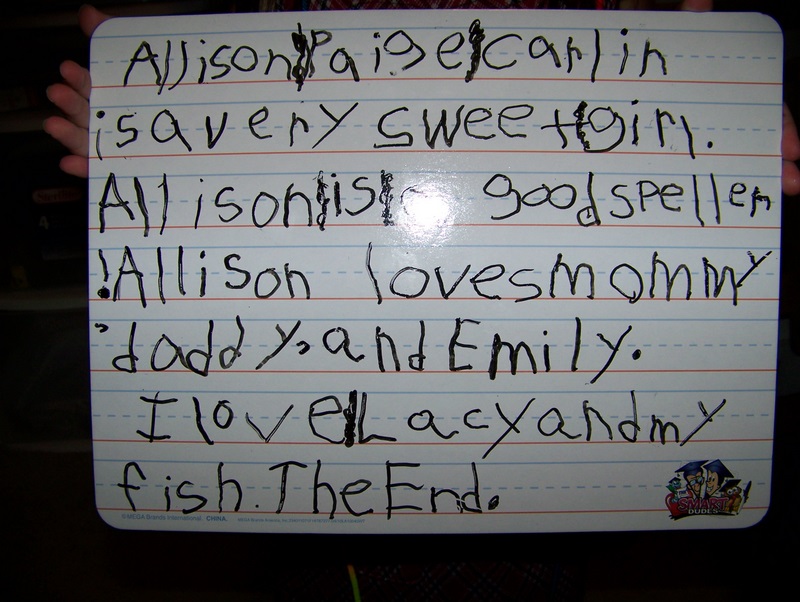 Allison Paige Carlin
is a very sweet girl.
Allison is good speller
! Allison loves mommy
, daddy, and Emily.
I love Lacy and my
fish. The End.
SMART
DUDES
© MEGA Brands International CHINA.